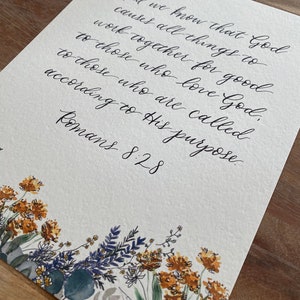 we know that God
causes all things to
work together for good
to those who love God,
to those who are called
according to His purpose
Romans 8 28